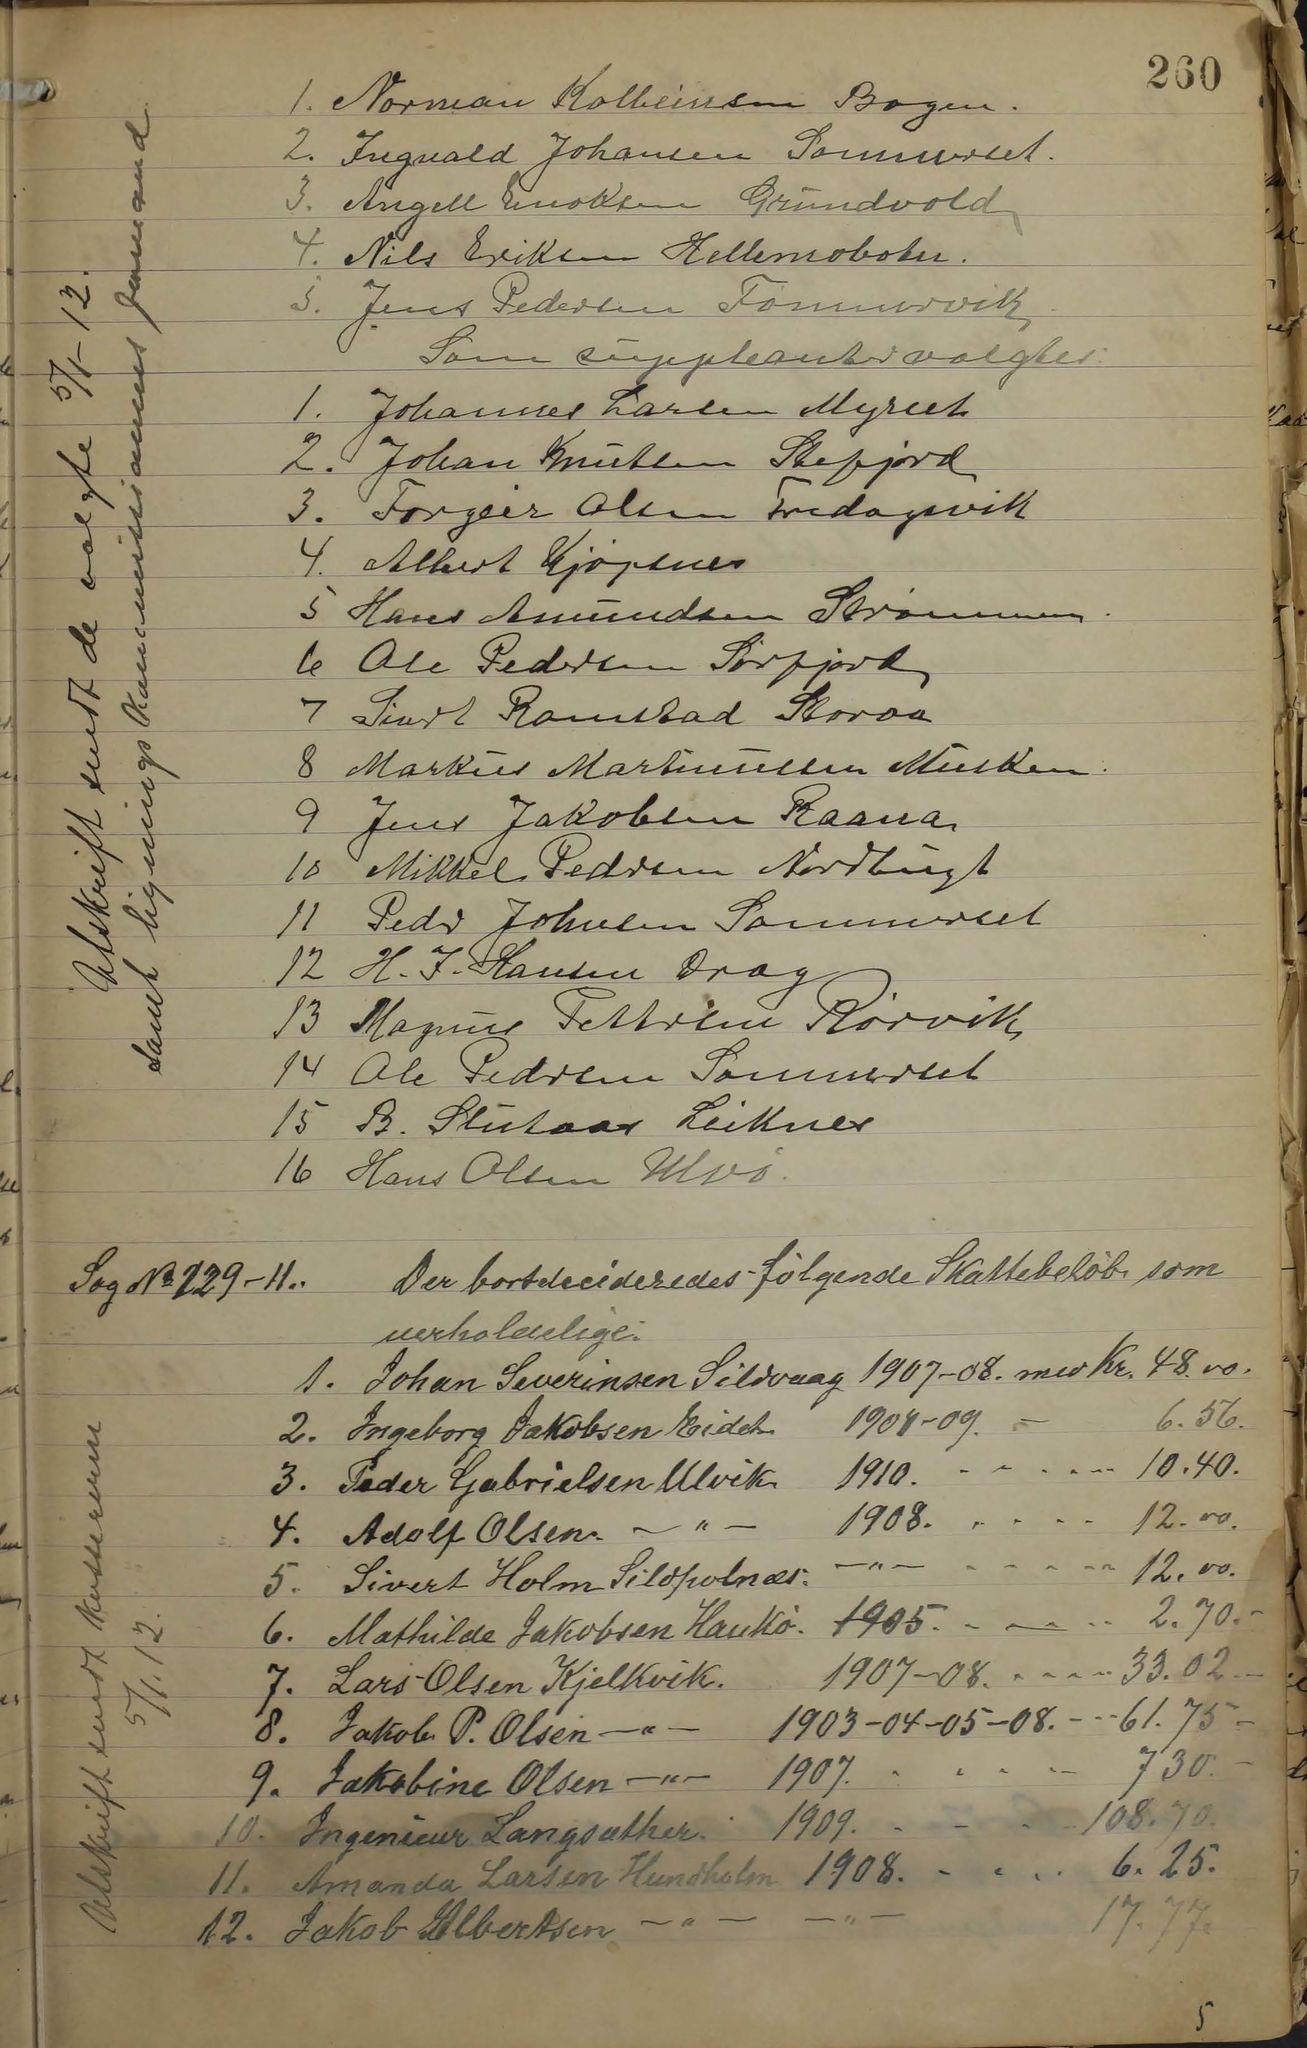 260
1. Norman Kolbeinsen Bogen.
2. Ingvald Johansen Sommerset.
3. Angell Enoksen Grundvold
4. Nils Eriksen Hellemobotn.
5. Jens Pedersen Tømmervik
Som suppleanter valgtes:
1. Johannes Larsen Myrset
2. Johan Knutsen Stefjord
3. Torgeir Olsen Fredagsvik
4. Albert Kjøpsnes
5 Hans Amundsen Strømmen.
6 Ole Pedersen Sørfjord
7 Sivert Ramstad Storaa
8 Markus Martinussen Musken.
9 Jens Jakobsen Raana.
10 Mikkel Pedersen Nordbugt
11 Peder Johnsen Sommerset
12 H. J. Hansen Drag
13 Magnus Pettersen Rørvik
14 Ole Pedersen Sommerset
15 B. Stutaas Leiknes
16 Hans Olsen Ulvø.
Utskrift sendt de valgte 5/1-12.
samt ligningskommissionens formand
Sag No 229-11.. Der bortdecideredes følgende Skattebeløb som
uerholdelige:
1. Johan Severinsen Sildvaag 1907-08. med Kr. 48.00.
2. Ingeborg Jakobsen Eidet 1908-09. - 6.56.
3. Peder Gabrielsen Ulvik 1910. - - - - - 10.40.
4. Adolf Olsen. - " - 1908. - - - - 12.00.
5. Sivert Holm Sildpolnæs. - " - - - - - - 12.00.
6. Mathilde Jakobsen Haukø. 1905. - - - - 2.70.-
7. Lars Olsen Kjelkvik. 1907-08. - - - - 33.02 -
8. Jakob P. Olsen - " - 1903-04-05-08. - - - 61.75 -
9. Jakobine Olsen - " - 1907. - - - - - 7 30. -
10. Ingeniør Langsæther. 1909. - - - - 108.70.
11. Amanda Larsen Hundholm 1908. - - - - 6.25.
12. Jakob Albertsen - " - - " - 17.77.
Utskrift sendt kassereren
5/1.12.
5